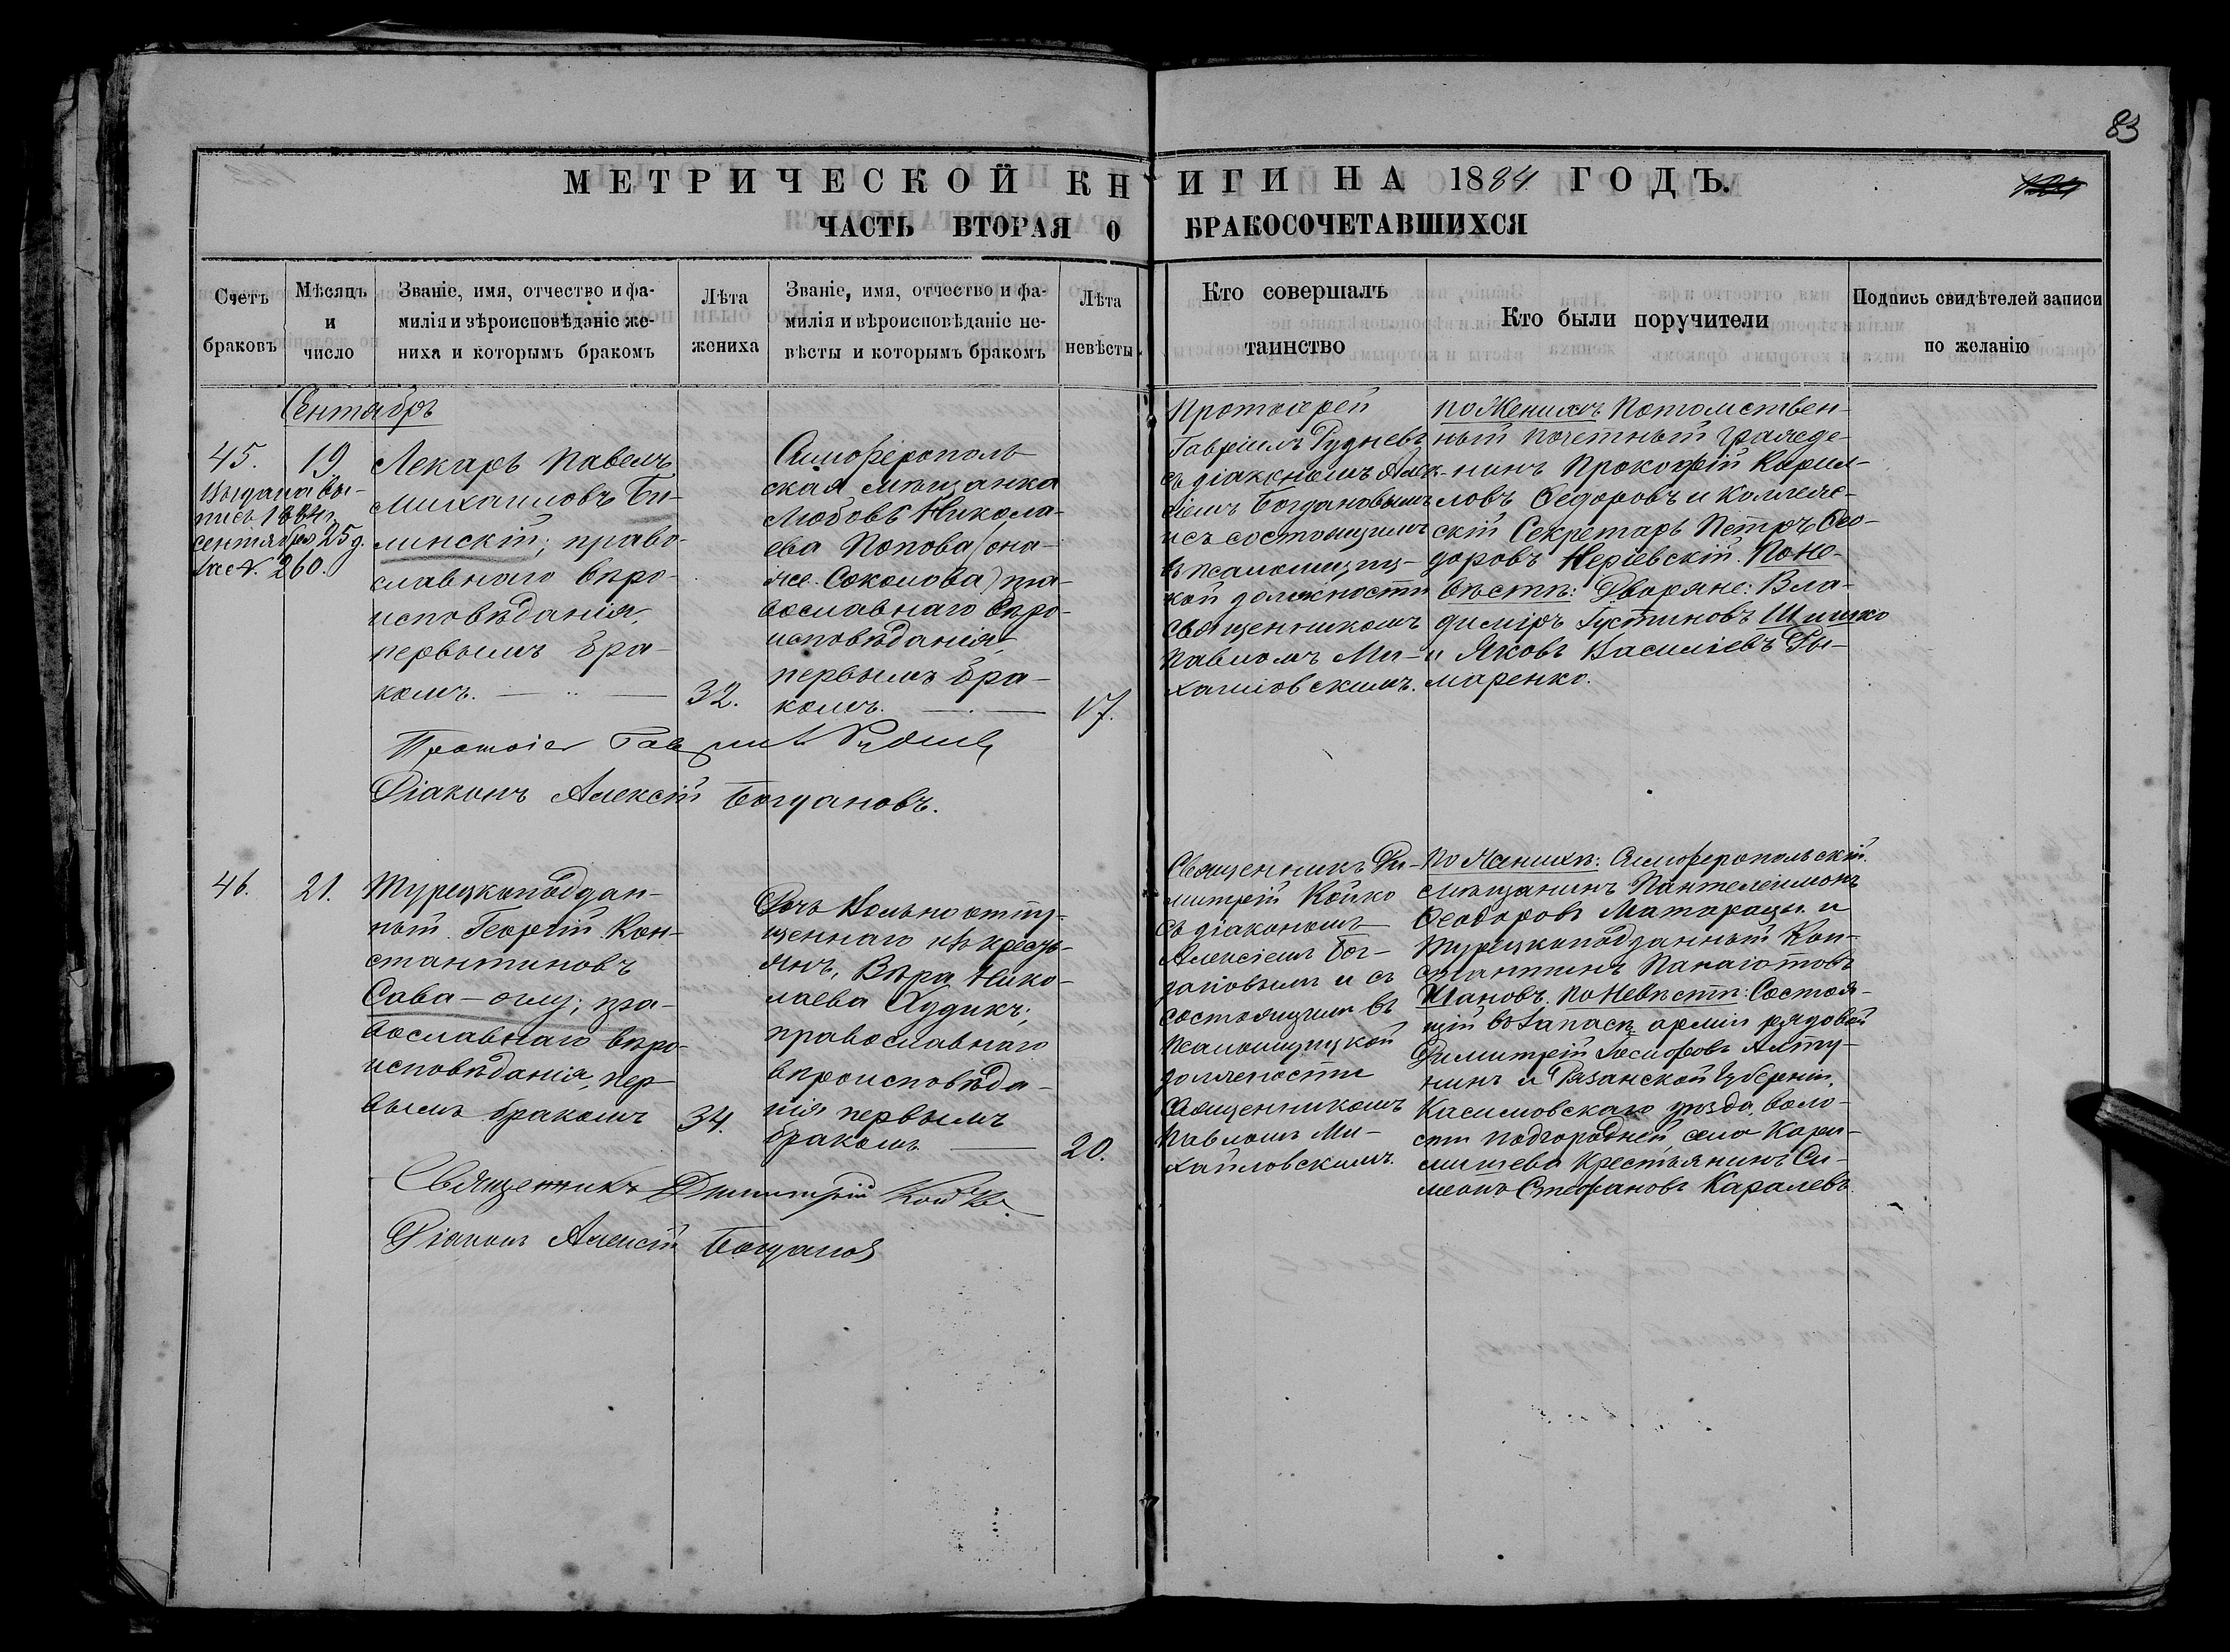 83
МЕТРИЧЕСКОЙ КНИГИ НА 1884 ГОДЪ.
ЧАСТЬ ВТОРАЯ О БРАКОСОЧЕТАВШИХСЯ
Счетъ браковъ
Мѣсяцъ и число
Званіе, имя, отчество и фа-
милія и вѣроисповѣданіе же-
ниха и которымъ бракомъ
Лѣта жениха
Званіе, имя, отчество и фа-
милія и вѣроисповѣданіе не-
вѣсты и которымъ бракомъ
Лѣта невѣсты
Кто совершалъ
таинство
Кто были поручители
Подпись свидѣтелей записи
по желанію
Сентябрь
45.
Выдана вы-
пись 1884 г.
сентября 25 д.
за №. 260.
19.
Лекарь Павелъ
Михаиловъ Би-
линскій; право-
славнаго вѣро-
исповѣданія,
первымъ бра-
комъ.
32.
Симферополь-
ская мѣщанка
Любовь Никола-
ева Попова (она-
же Соколова) пра-
вославнаго вѣро-
исповѣданія,
первымъ бра-
комъ.
17.
Протоіерей
Гавріилъ Рудневъ
съ діакономъ Алек-
сіемъ Богдановымъ
и съ состоящимъ
въ псаломщиц-
кой должности
священникомъ
Павломъ Ми-
хайловскимъ.
По Женихѣ Потомствен-
ный почетный гражда-
нинъ Прокофій Кирил-
ловъ Федоровъ и Коллеж-
скій Секретарь Петръ Фео-
доровъ Неріевскій. По Не-
вѣстѣ: Дворяне: Вла-
диміръ Густиновъ Шишко
и Яковъ Василіевъ Ды-
маренко.
Протоіер Гавріилъ Руднев
Діаконъ Алексій Богдановъ.
46.
21.
Турецкоподдан-
ный Георгій Кон-
стантиновъ
Сава-оглу; пра-
вославнаго вѣро-
исповѣданія, пер-
вымъ бракомъ
34.
Дочь вольноотпу-
щеннаго изъ кресть-
янъ, Вѣра Нико-
лаева Худикъ;
православнаго
вѣроисповѣда-
нія первымъ
бракомъ
20.
Священникъ Ди-
митрій Койко
съ діакономъ
Алексіемъ Бог-
дановымъ и съ
состоящимъ въ
псаломщицкой
должности
священникомъ
Павломъ Ми-
хайловскимъ.
По Женихѣ: Симферопольскій
мѣщанинъ Пантелеимонъ
Феодоровъ Матараци и
турецкоподданный Кон-
стантинъ Панаіотовъ
Шановъ. По Невѣстѣ: Состоя-
щій въ запасѣ арміи рядовой
Димитрій Іосифовъ Алту-
нинъ и Рязанской губерніи,
Касимовскаго уѣзда, воло-
сти Подгородней, села Кари-
мишева Крестьянинъ Си-
меонъ Стефановъ Каралевъ.
Священникъ Димитрій Койко
Діаконъ Алексій Богданов